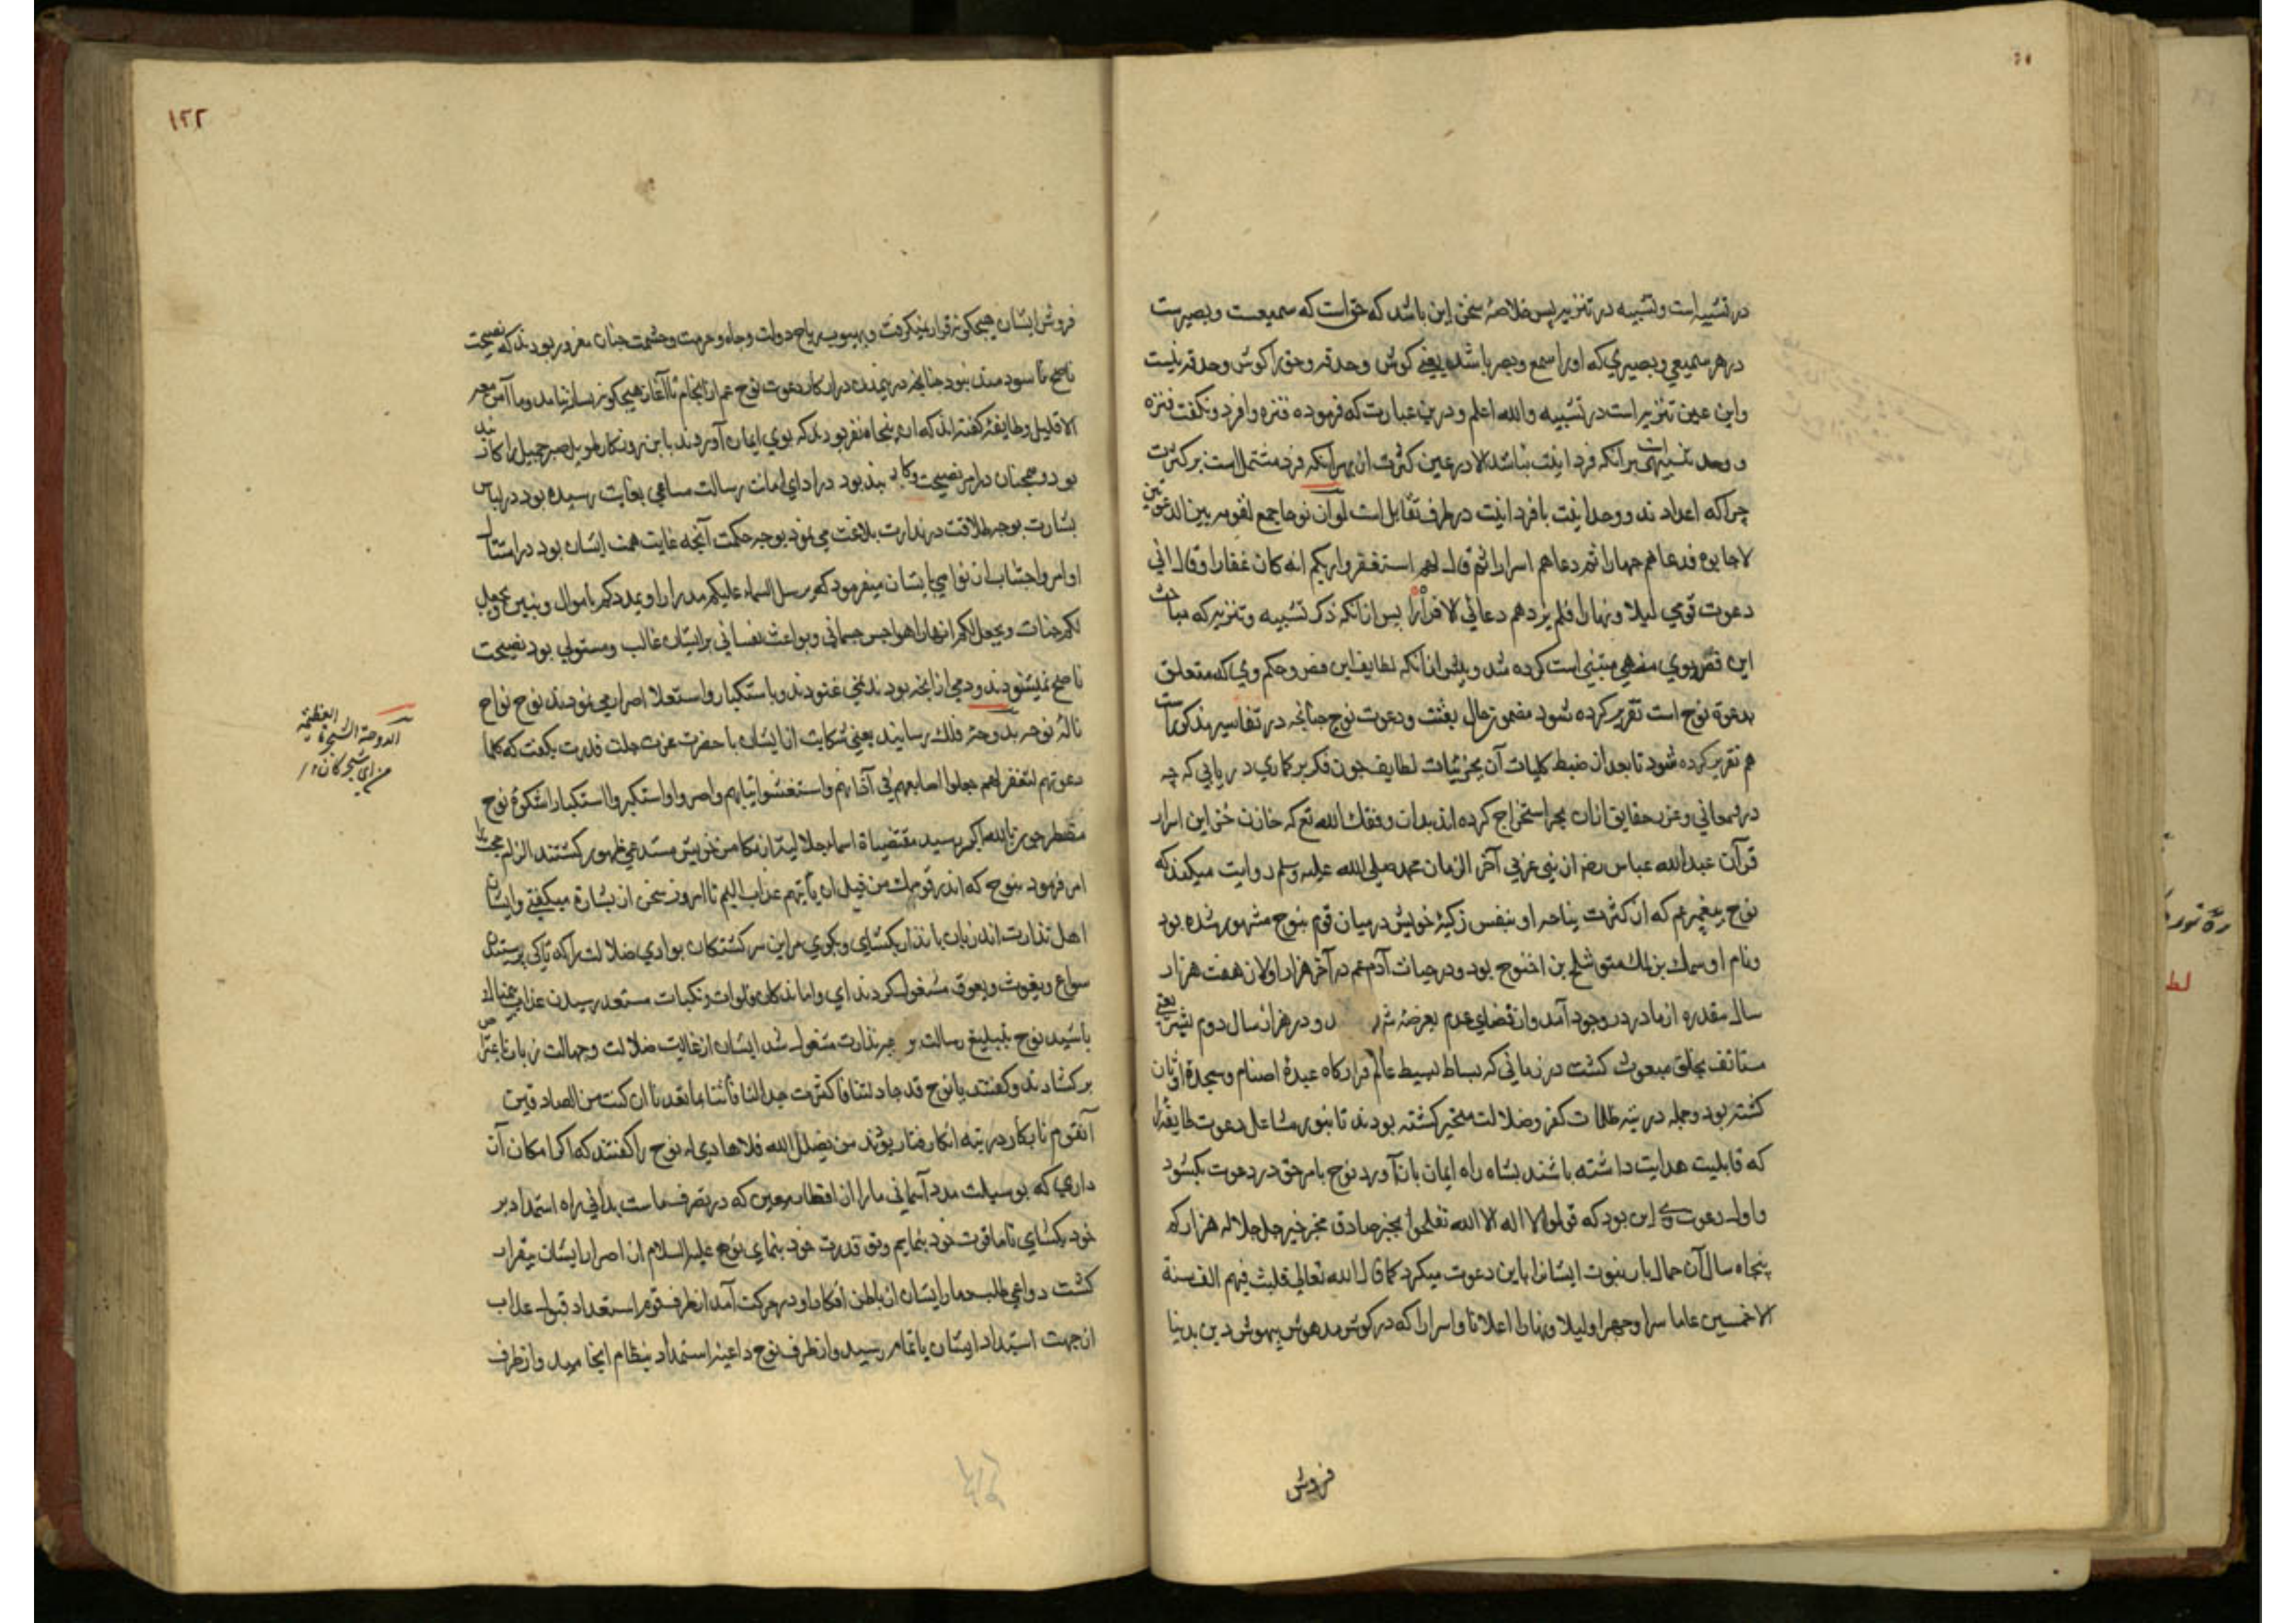 در تشبیه است وتشبیه در تنزیه پس خلاصهٔ سخن این باشد که حق است که سمیعست وبصیرست
در هر سمیعی وبصیری که اورا سمع وبصر باشد یعنی کوش وحدقه وحق را کوش وحدقه نیست
واین عین تنزیه است در تشبیه والله اعلم ودرین عبارت که فرموده فنزه وافرد ونکفت فنزه
ووحد تنبیهی است برآنکه فردانیت نباشد الا در عین کثرت از بهر آنکه فرد مشتمل است بر کثرت
چراکه اعداد ند ووحدانیت با فردانیت در طرف تقابل است لو ان نوحا جمع لقومه بین الدعوتین
لاجابوه فدعاهم جهارا ثم دعاهم اسرارا ثم قال لهم استغفروا ربکم انه کان غفارا وقال انی
دعوت قومی لیلا ونهارا فلم یزدهم دعائی الا فرارا پس ازانکه ذکر تشبیه وتنزیه که مباحث
این فص نوی مبتنی است کرده شد وپیش ازانکه لطایف این فص وحکم وی که متعلق
بدعوة نوح است تقریر کرده شود مضمون حال بعثت ودعوت نوح چنانچه در تفاسیر مذکورست
هم تقریر کرده شود تا بعد از ضبط کلیات آن بجزئیات لطایف چون فکر بر کاری دریابی که چه
در معانی وغرر حقایق ازان بحر استخراج کرده اند بدان وفقک الله تع که خازن خزاین اسرار
قرآن عبد الله عباس رضه از نبی عربی آخر الزمان محمد صلی الله علیه وسلم روایت میکند که
نوح پیغمبر عم که از کثرت نیاحه او بنفس زکیهٔ خویش درمیان قوم بنوح مشهور شده بود
ونام او سمک بن لمک متوشلح بن اخنوح بود ودر حیات آدم عم در آخر هزار اول از هفت هزار
سال مقدره از مادر در وجود آمد واز قضای عدم بعرضهٔ ود در هزار سال دوم یعنی
مستانف بخلق مبعوث کشت در زمانی که بساط بسیط عالم قرارکاه عبدهٔ اصنام وسجدهٔ اوثان
کشته بود وجمله در تیه ظلمات کفر وضلالت متحیر کشته بودند تا بنور مشاعل دعوت طایفهٔ را
که قابلیت هدایت داشته باشند بشاه راه ایمان باز آورد نوح بامر حق در دعوت بکشود
واول دعوت وی این بود که قولوا لا اله الا الله تفلحوا بخبر صادق مخبر خبیر جل جلاله هزار کم
پنجاه سال آن حمال بار نبوت ایشانرا باین دعوت میکرد کما قال الله تعالی فلبث فیهم الف سنة
الا خمسین عاما سرا وجهرا ولیلا ونهارا اعلانا واسرارا که در کوش مدهوش بیهوش دین بدنیا
فروش
١٢٢
فروش ایشان هیچکونه قرار نمیکرفت وبهبوب ریاح دولت وجاه وحرمت وحشمت چنان مغرور بودند که نصیحت
ناصح نا سودمند بود چنانچه در مدت دراز کار دعوت نوح عم از انجام تا آغاز هیچکونه نیامد وما آمن معه
الا قلیل وطایفهٔ کفته اند که پنجاه نفر بودند که بوی ایمان آوردند با این روزکار طویل صبر جمیل را
بود وهمچنان در امر نصیحت بند بود در ادای امانت رسالت مساعی بغایت رسیده بود در لباس
بشارت بوجه طلاقت در نذارت بلاغت می نمود بوجه حکمت آنچه غایت همت ایشان بود در امتثال
اوامر واجتناب از نواهی بایشان میفرمود که یرسل السماء علیکم مدرارا ویمددکم باموال وبنین ویجعل
لکم جنات ویجعل لکم انهارا هواجس جسمانی وبواعث نفسانی بر ایشان غالب ومستولی بود نصیحت
ناصح نمیشنودند ودمی از آنچه بودند نمی غنودند وباستکبار واستعلا اصرار می نمودند نوح نواح
نالهٔ نوحه بدوحهٔ فلک رسانید یعنی شکایت از ایشان با حضرت عزت جلت قدرت بکفت که کلما
دعوتهم لتغفر لهم جعلوا اصابعهم فی آذانهم واستغشوا ثیابهم واصروا واستکبروا استکبارا شکوهٔ نوح
مضطر چون بالله اکبر رسید مقتضیاة اسماء جلالیت از مکامن خویش مستدعی ظهور کشتند الزام حجت را
امر فرمود بنوح که انذر قومک من قبل ان یأتیهم عذاب الیم تا امروز سخن از بشارة میکفتی وایشان
اهل نذارت اند زبان بانذار بکشای وبکوی مر این سرکشتکان بوادی ضلالت را که تا کی بپرستش
سواع ویغوث ویعوق مشغول کردند ای واماندکان فلوات ونکبات مستعد رسیدن عذاب
باشید نوح بتبلیغ رسالت نذارت مشغول شد ایشان از غایت ضلالت وجهالت زبان باعتراض
برکشادند وکفتند یا نوح قد جادلتنا فاکثرت جدالنا فأتنا بما تعدنا ان کنت من الصادقین
آنقوم نابکار در تیه انکار رفتار بودند من یضلل الله فلا هادی له نوح را کفتند که اکر امکان آن
داری که بوسیلت مدد آسمانی مارا از اقطار زمین که در تصرف ماست بدانی راه استمداد بر
خود بکشای تا ما قوت خود بنمایم وتو قدرت خود بنمای نوح علیه السلام از اصرار ایشان بیقرار
کشت دواعی طلب دمار ایشان از باطن افکار او در حرکت آمد از طرف قوم استعداد قبول عذاب
از جهت استبداد ایشان باتمام رسید واز طرف نوح داعیهٔ استمداد بنظام انجامید واز طرف
الدوحة الشجرة العظیمة
من ای شجر کان ١٢